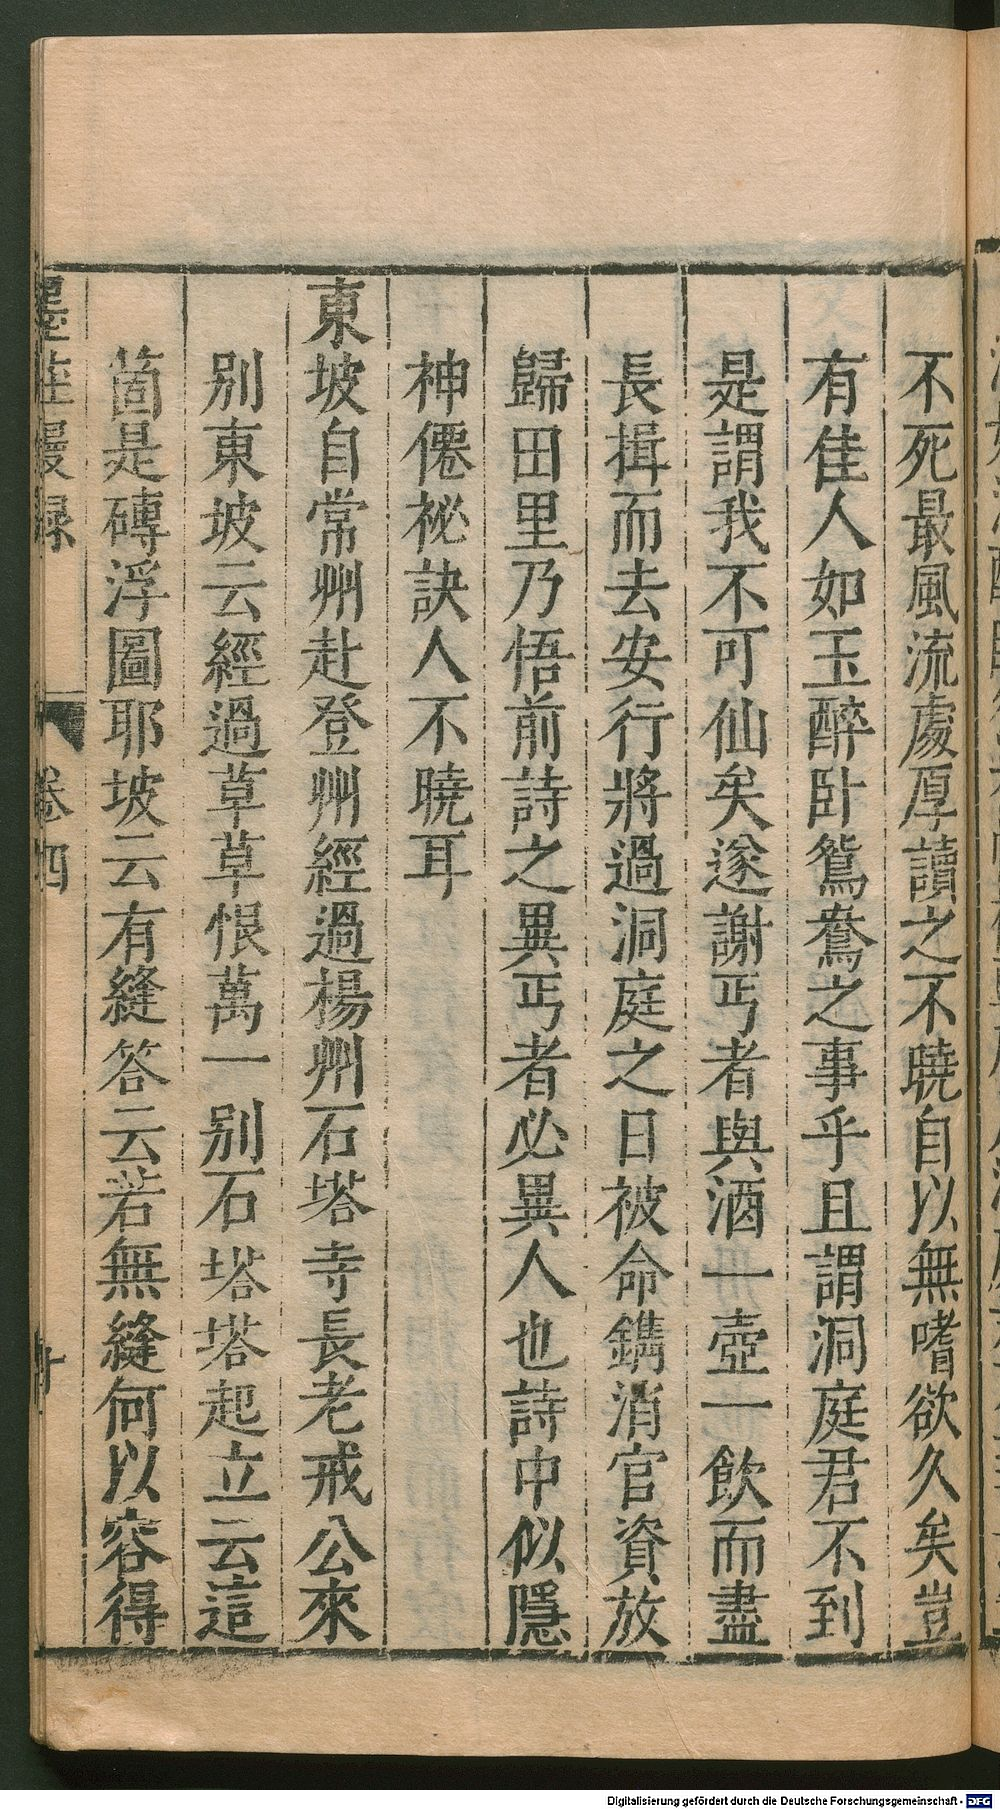 不死最風流處厚讀之不曉自以無嗜欲久矣豈
有佳人如玉醉卧鴛鴦之事乎且謂洞庭君不到
是謂我不可仙矣遂謝丐者與酒一壺一飲而盡
長揖而去安行將過洞庭之日被命鐫消官資放
歸田里乃悟前詩之異丐者必異人也詩中似隱
神僊祕訣人不曉耳
東坡自常州赴登州經過楊州石塔寺長老戒公來
别東坡云經過草草恨萬一别石塔塔起立云這
箇是磚浮圖耶坡云有縫答云若無縫何以容得
墨莊漫録
卷四
Digitalisierung gefördert durch die Deutsche Forschungsgemeinschaft - DFG